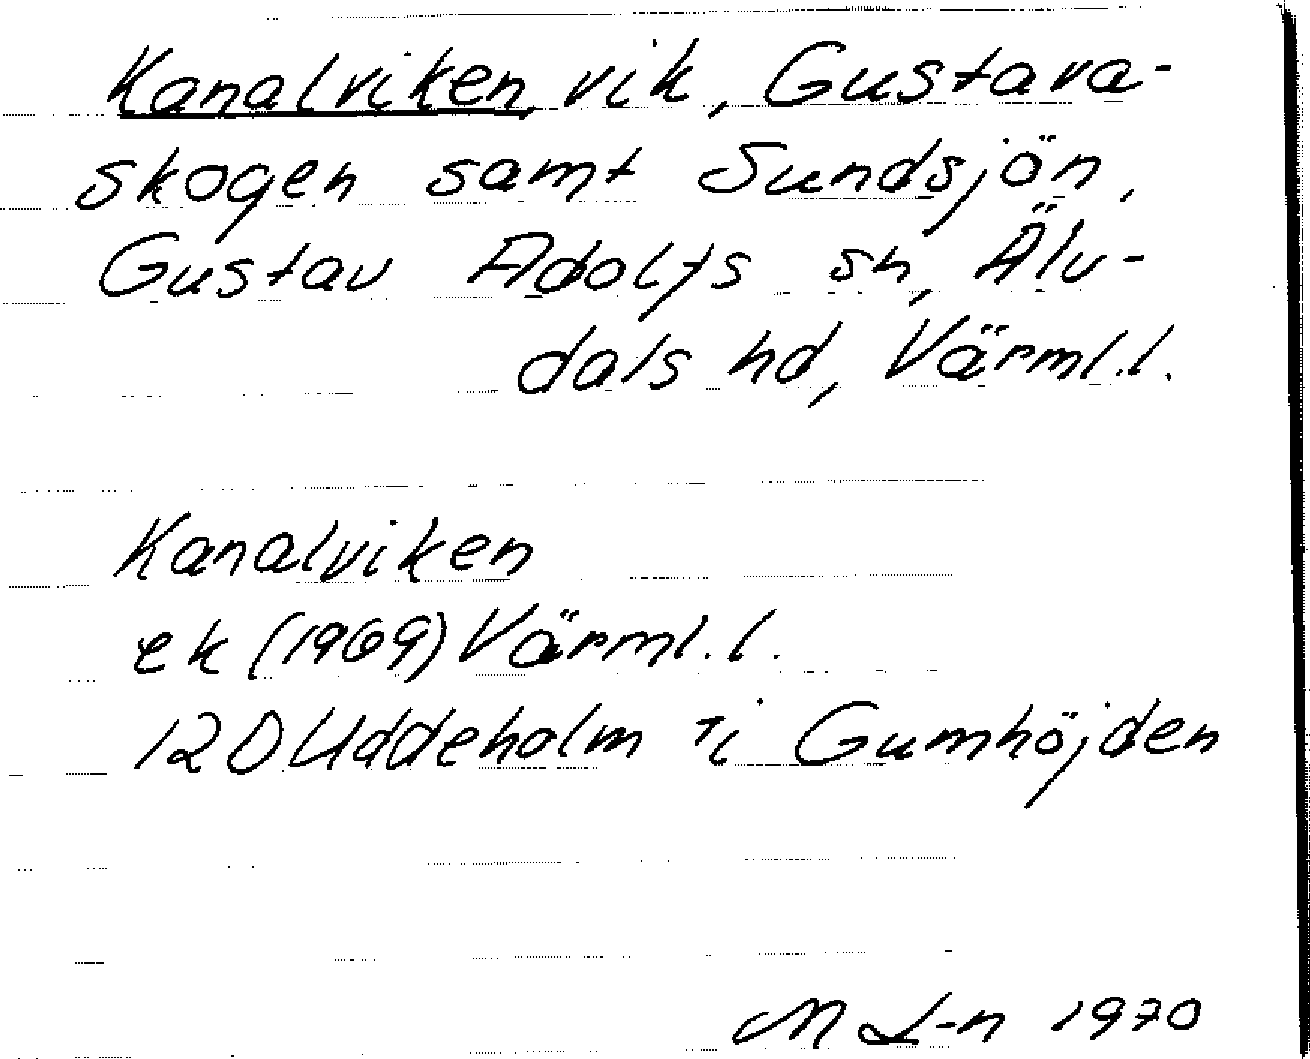 Kanalviken, vik, Gustava-
skogen samt Sundsjön,
Gustav Adolfs sn, Älv-
dals hd, Värml.l.
Kanalviken
ek (1969) Värml.l.
12D Uddeholm 7i Gumhöjden
M L-n 1970